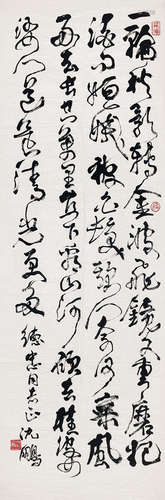 一輪秋影轉金波飛鏡又重磨把
酒問姮娥被白髮欺人奈何乘風
好去長空萬里直下看山河斫去桂婆
娑人道是清光更多 德忠同志正 沈鵬